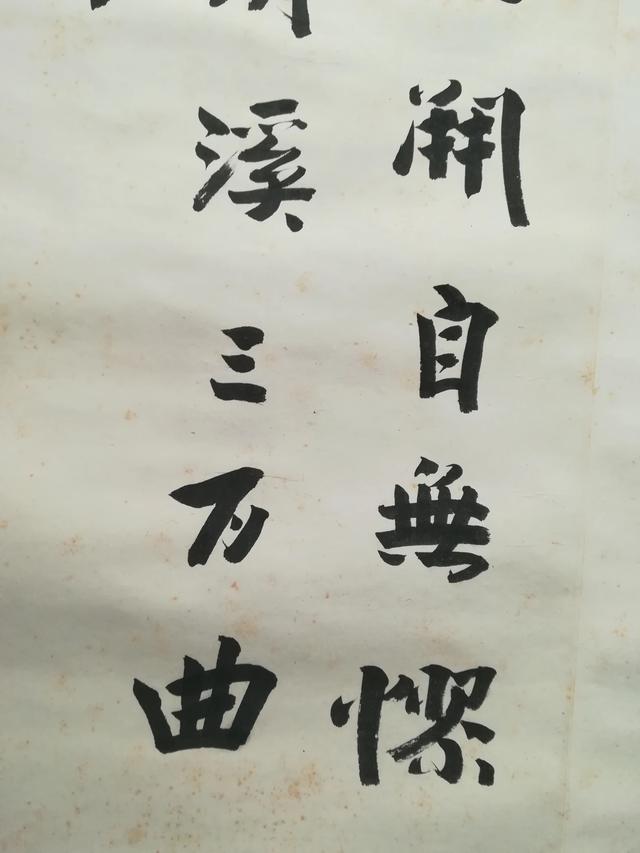 開自無憀
溪三万曲